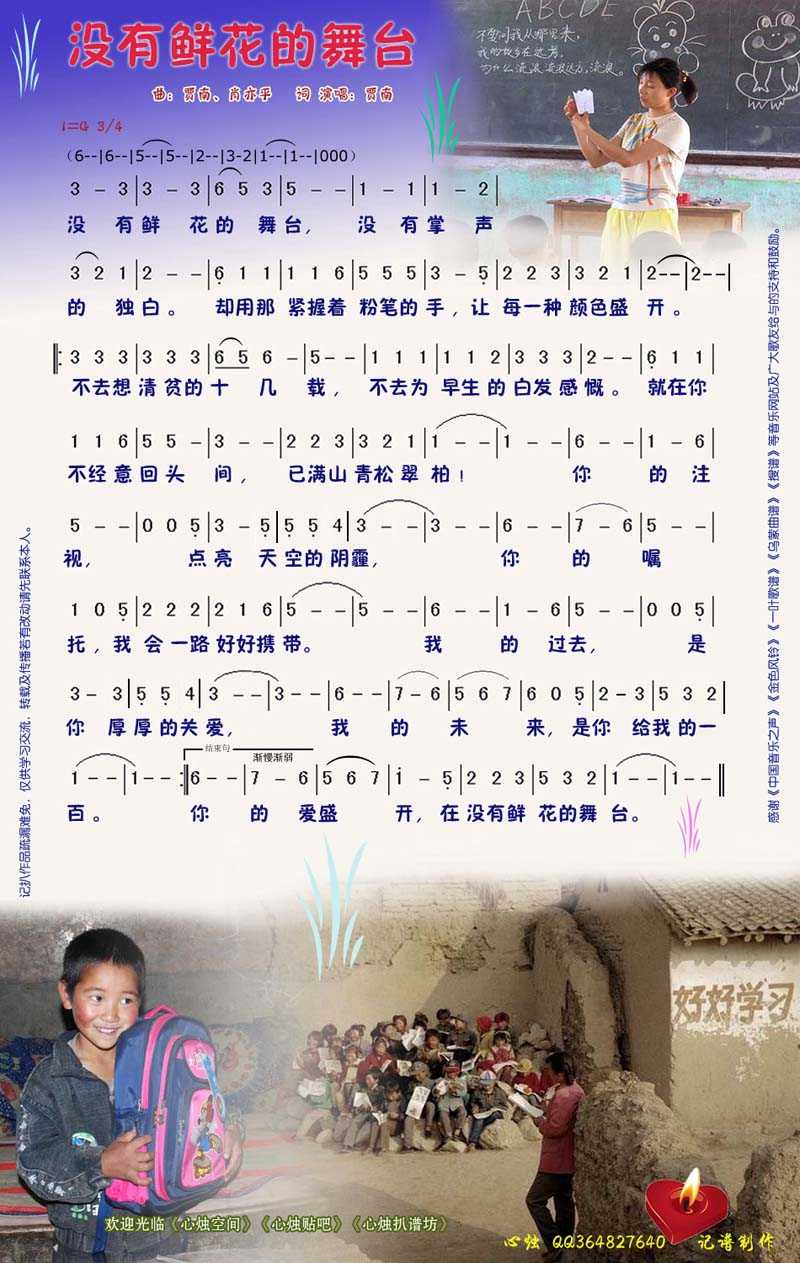 没有鲜花的舞台
曲：贾南、肖亦乎 词 演唱：贾南
1=G 3/4
ABCDE
不要问我从哪里来，
我的故乡在远方，
为什么流浪 流浪远方，流浪。
（6--|6--|5--|5--|2--|3-2|1--|1--|000）
3 - 3|3 - 3|6 5 3|5 - -|1 - 1|1 - 2|
没 有鲜 花的 舞台， 没 有掌 声
3 2 1|2 - -|6 1 1|1 1 6|5 5 5|3 - 5|2 2 3|3 2 1|2--|2--|
的 独白。 却用那 紧握着 粉笔的 手，让 每一种 颜色盛 开。
‖:3 3 3|3 3 3|6 5 6 -|5 - -|1 1 1|1 1 2|3 3 3|2 - -|6 1 1|
不去想 清贫的 十 几 载， 不去为 早生的 白发感 慨。 就在你
1 1 6|5 5 -|3 - -|2 2 3|3 2 1|1 - -|1 - -|6 - -|1 - 6|
不经意 回头 间， 已满山 青松翠 柏！ 你 的 注
5 - -|0 0 5|3 - 5|5 5 4|3 - -|3 - -|6 - -|7 - 6|5 - -|
视， 点亮 天空的 阴霾， 你 的 嘱
1 0 5|2 2 2|2 1 6|5 - -|5 - -|6 - -|1 - 6|5 - -|0 0 5|
托，我 会一路 好好携 带。 我 的 过去， 是
3 - 3|5 5 4|3 - -|3 - -|6 - -|7 - 6|5 6 7|6 0 5|2 - 3|5 3 2|
你 厚厚的 关爱， 我 的 未 来，是你 给我的一
结束句
渐慢渐弱
1 - -|1 - -:‖6 - -|7 - 6|5 6 7|i - 5|2 2 3|5 3 2|1 - -|1 - -‖
百。 你 的 爱盛 开，在 没有鲜 花的舞 台。
记扒作品疏漏难免，仅供学习交流，转载及传播若有改动请先联系本人。
感谢《中国音乐之声》《金色风铃》《一叶歌谱》《乌蒙曲谱》《搜谱》等音乐网站及广大歌友给与的支持和鼓励。
好好学习
欢迎光临《心烛空间》《心烛贴吧》《心烛扒谱坊》
心烛 QQ364827640 记谱制作